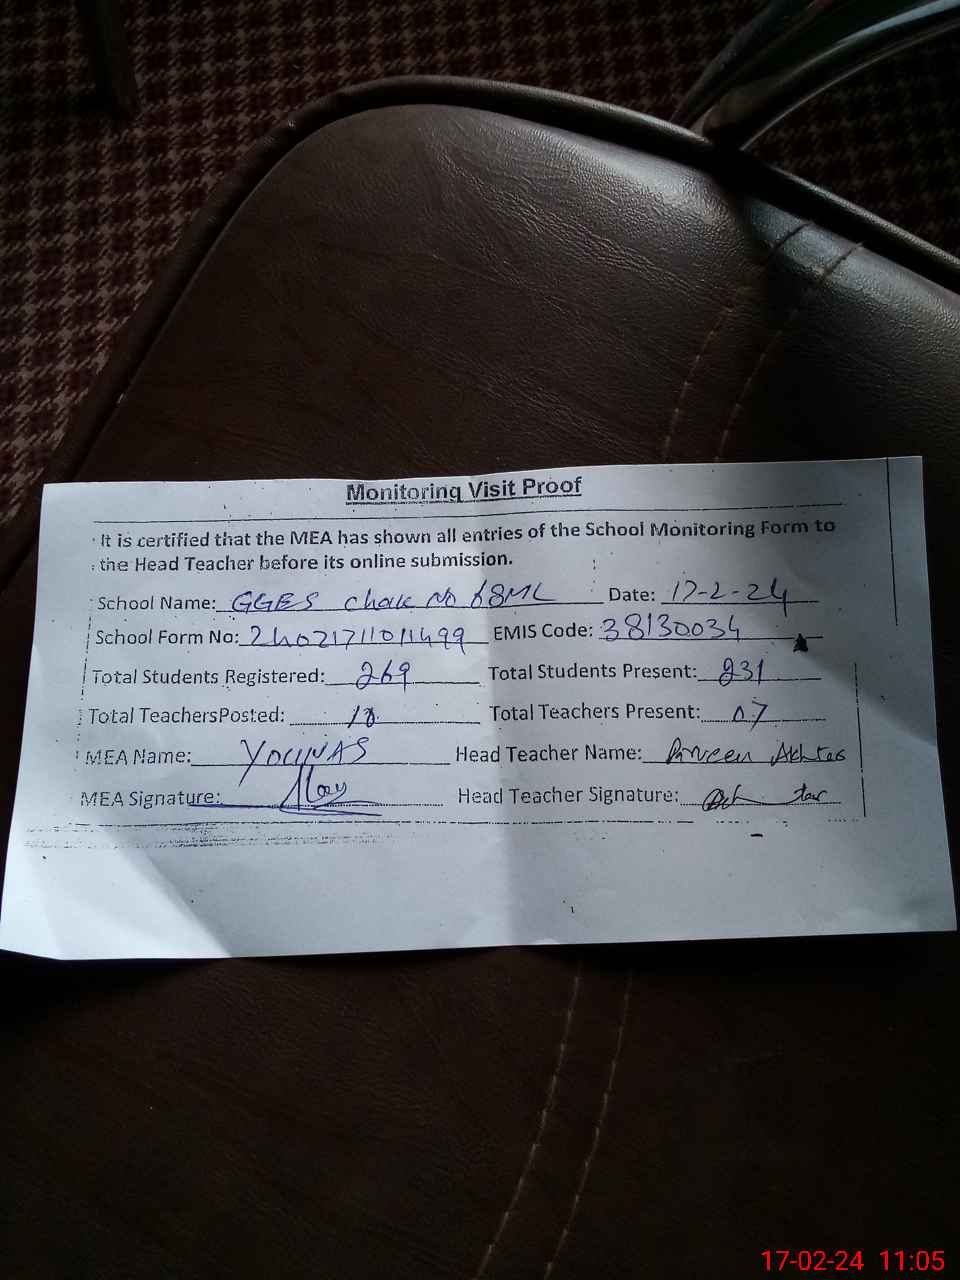 Monitoring Visit Proof
It is certified that the MEA has shown all entries of the School Monitoring Form to
the Head Teacher before its online submission.
School Name: GGES Chak No 68ML Date: 17-2-24
School Form No: 24021711011499 EMIS Code: 38130034
Total Students Registered: 269 Total Students Present: 231
Total TeachersPosted: Total Teachers Present: 07
MEA Name: YOUNAS Head Teacher Name: Parveen Akhtar
MEA Signature: Head Teacher Signature:
17-02-24 11:05